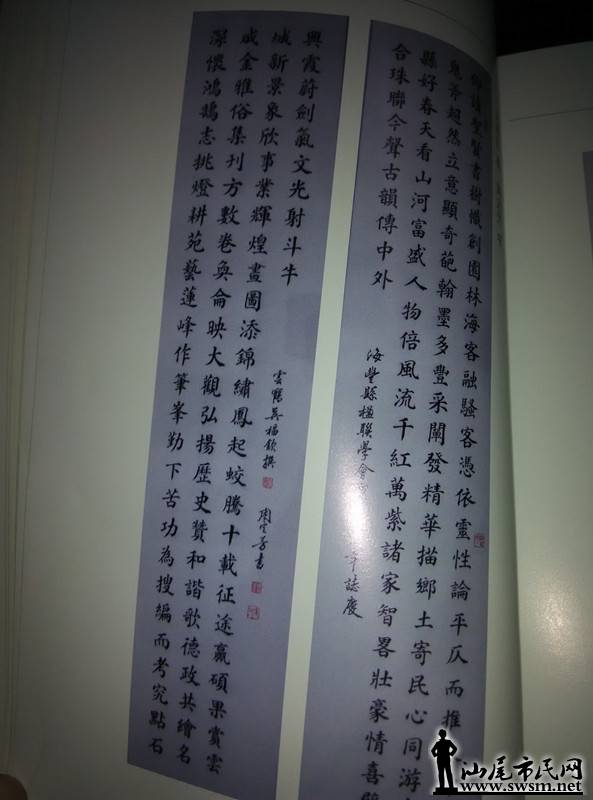 讀聖賢書樹幟創園林海客融騷客憑依靈性論平仄而推
鬼斧超然立意顯奇葩翰墨多豐采闡發精華描鄉土寄民心同游
縣好春天看山河富盛人物倍風流千紅萬紫諸家智畧壯豪情喜
合珠聯今聲古韻傳中外
海豐縣楹聯學會
年誌慶
深懷鴻鵠志挑燈耕苑藝蓮峰作筆峯勤下苦功為搜編而考究點石
成金雅俗集刊方數卷奐侖映大觀弘揚歷史贊和諧歌德政共繪名
城新景象欣事業輝煌畫圖添錦繡鳳起蛟騰十載征途贏碩果賞雲
興霞蔚劍氣文光射斗牛
雲鶴吳福欽撰
書
汕尾市民网
www.swsm.net